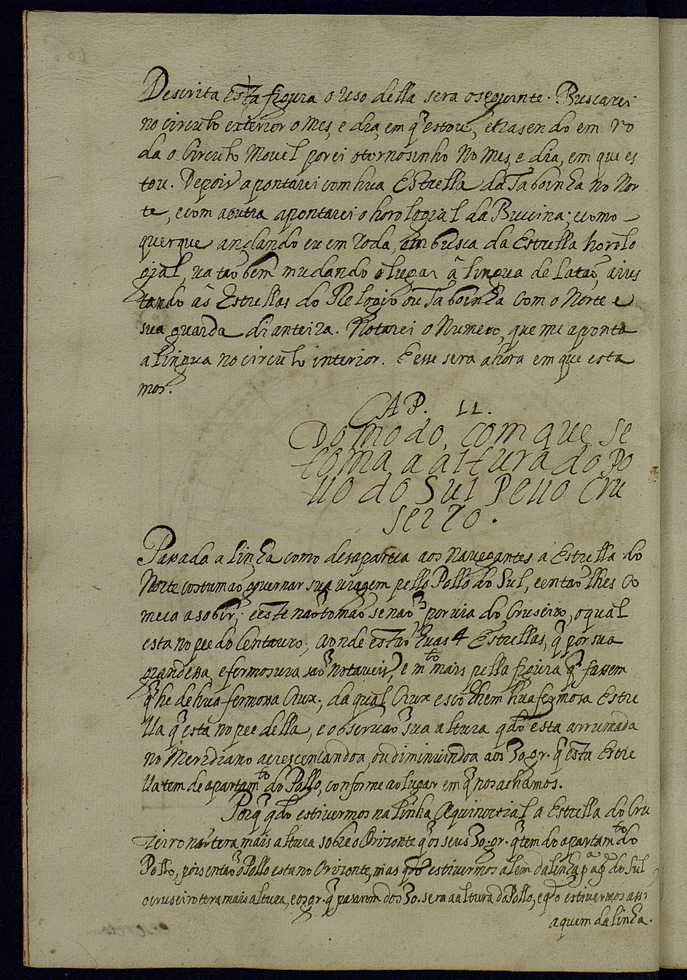 Descrita esta figura o uso della sera o seguinte. Buscarei
no circulo exterior o mes, e dia, em q̃ estou, e trasendo em ro
da o circulo Movel porei o tornosinho No Mes, e dia, em que es
tou. Depois apontarei com hũa Estrella da Taboinha no Nor
te, e com a outra apontarei o horologial da Buccina; e como
quer que andando eu em roda, em busca da Estrella horolo
gial, va taõ bem mudando o lugar â lingua de Lataõ, aius
tando âs Estrellas do Relogio ou Taboinha com o Norte e
sua guarda dianteira. Notarei o Numero, que me aponta
a lingua no circulo interior. E esse sera a hora em que esta
mos.
CAP. 11.
Do modo, com que se
toma a altura do Po
llo do Sul Pello Cru
seiro.
Pasada a linha como desapareca aos navegantes a Estrella do
Norte costumaõ governar sua viagem pello Pollo do Sul, e entaõ lhes co
meca a sobir; e este naõ tomaõ senaõ por via do Cruseiro, o qual
esta no pee do Centauro; aonde estaõ huas 4 Estrellas, q̃ por sua
grandesa, e fermosura saõ notaveis, e m.to mais pella figura q̃ fasem
q̃ he de hũa fermosa Crux; da qual Crux escolhem hũa fermosa Estre
lla q̃ esta no pee della, e observaõ sua altura q̃do esta arrumada
no Meridiano acrescentandoa, ou diminuindoa aos 30. gr. q̃ esta Estre
lla tem de apartam.to do Pollo, conforme ao lugar em q̃ nos achamos.
Porq̃ q̃do estivermos na linha Aquinoctial a Estrella do Cru
zeiro naõ tera mais altura sobre o Orizonte q̃ os seus 30. gr. q̃ tem do apartam.to do
Pollo, pois entaõ o Pollo esta no Orizonte, mas q̃do estivermos alem da linha p.a a p.te do Sul
o cruseiro tera mais altura, e os gr. q̃ pasarem dos 30. sera a altura do Pollo, e q̃do estivermos assi
aquem da linha.